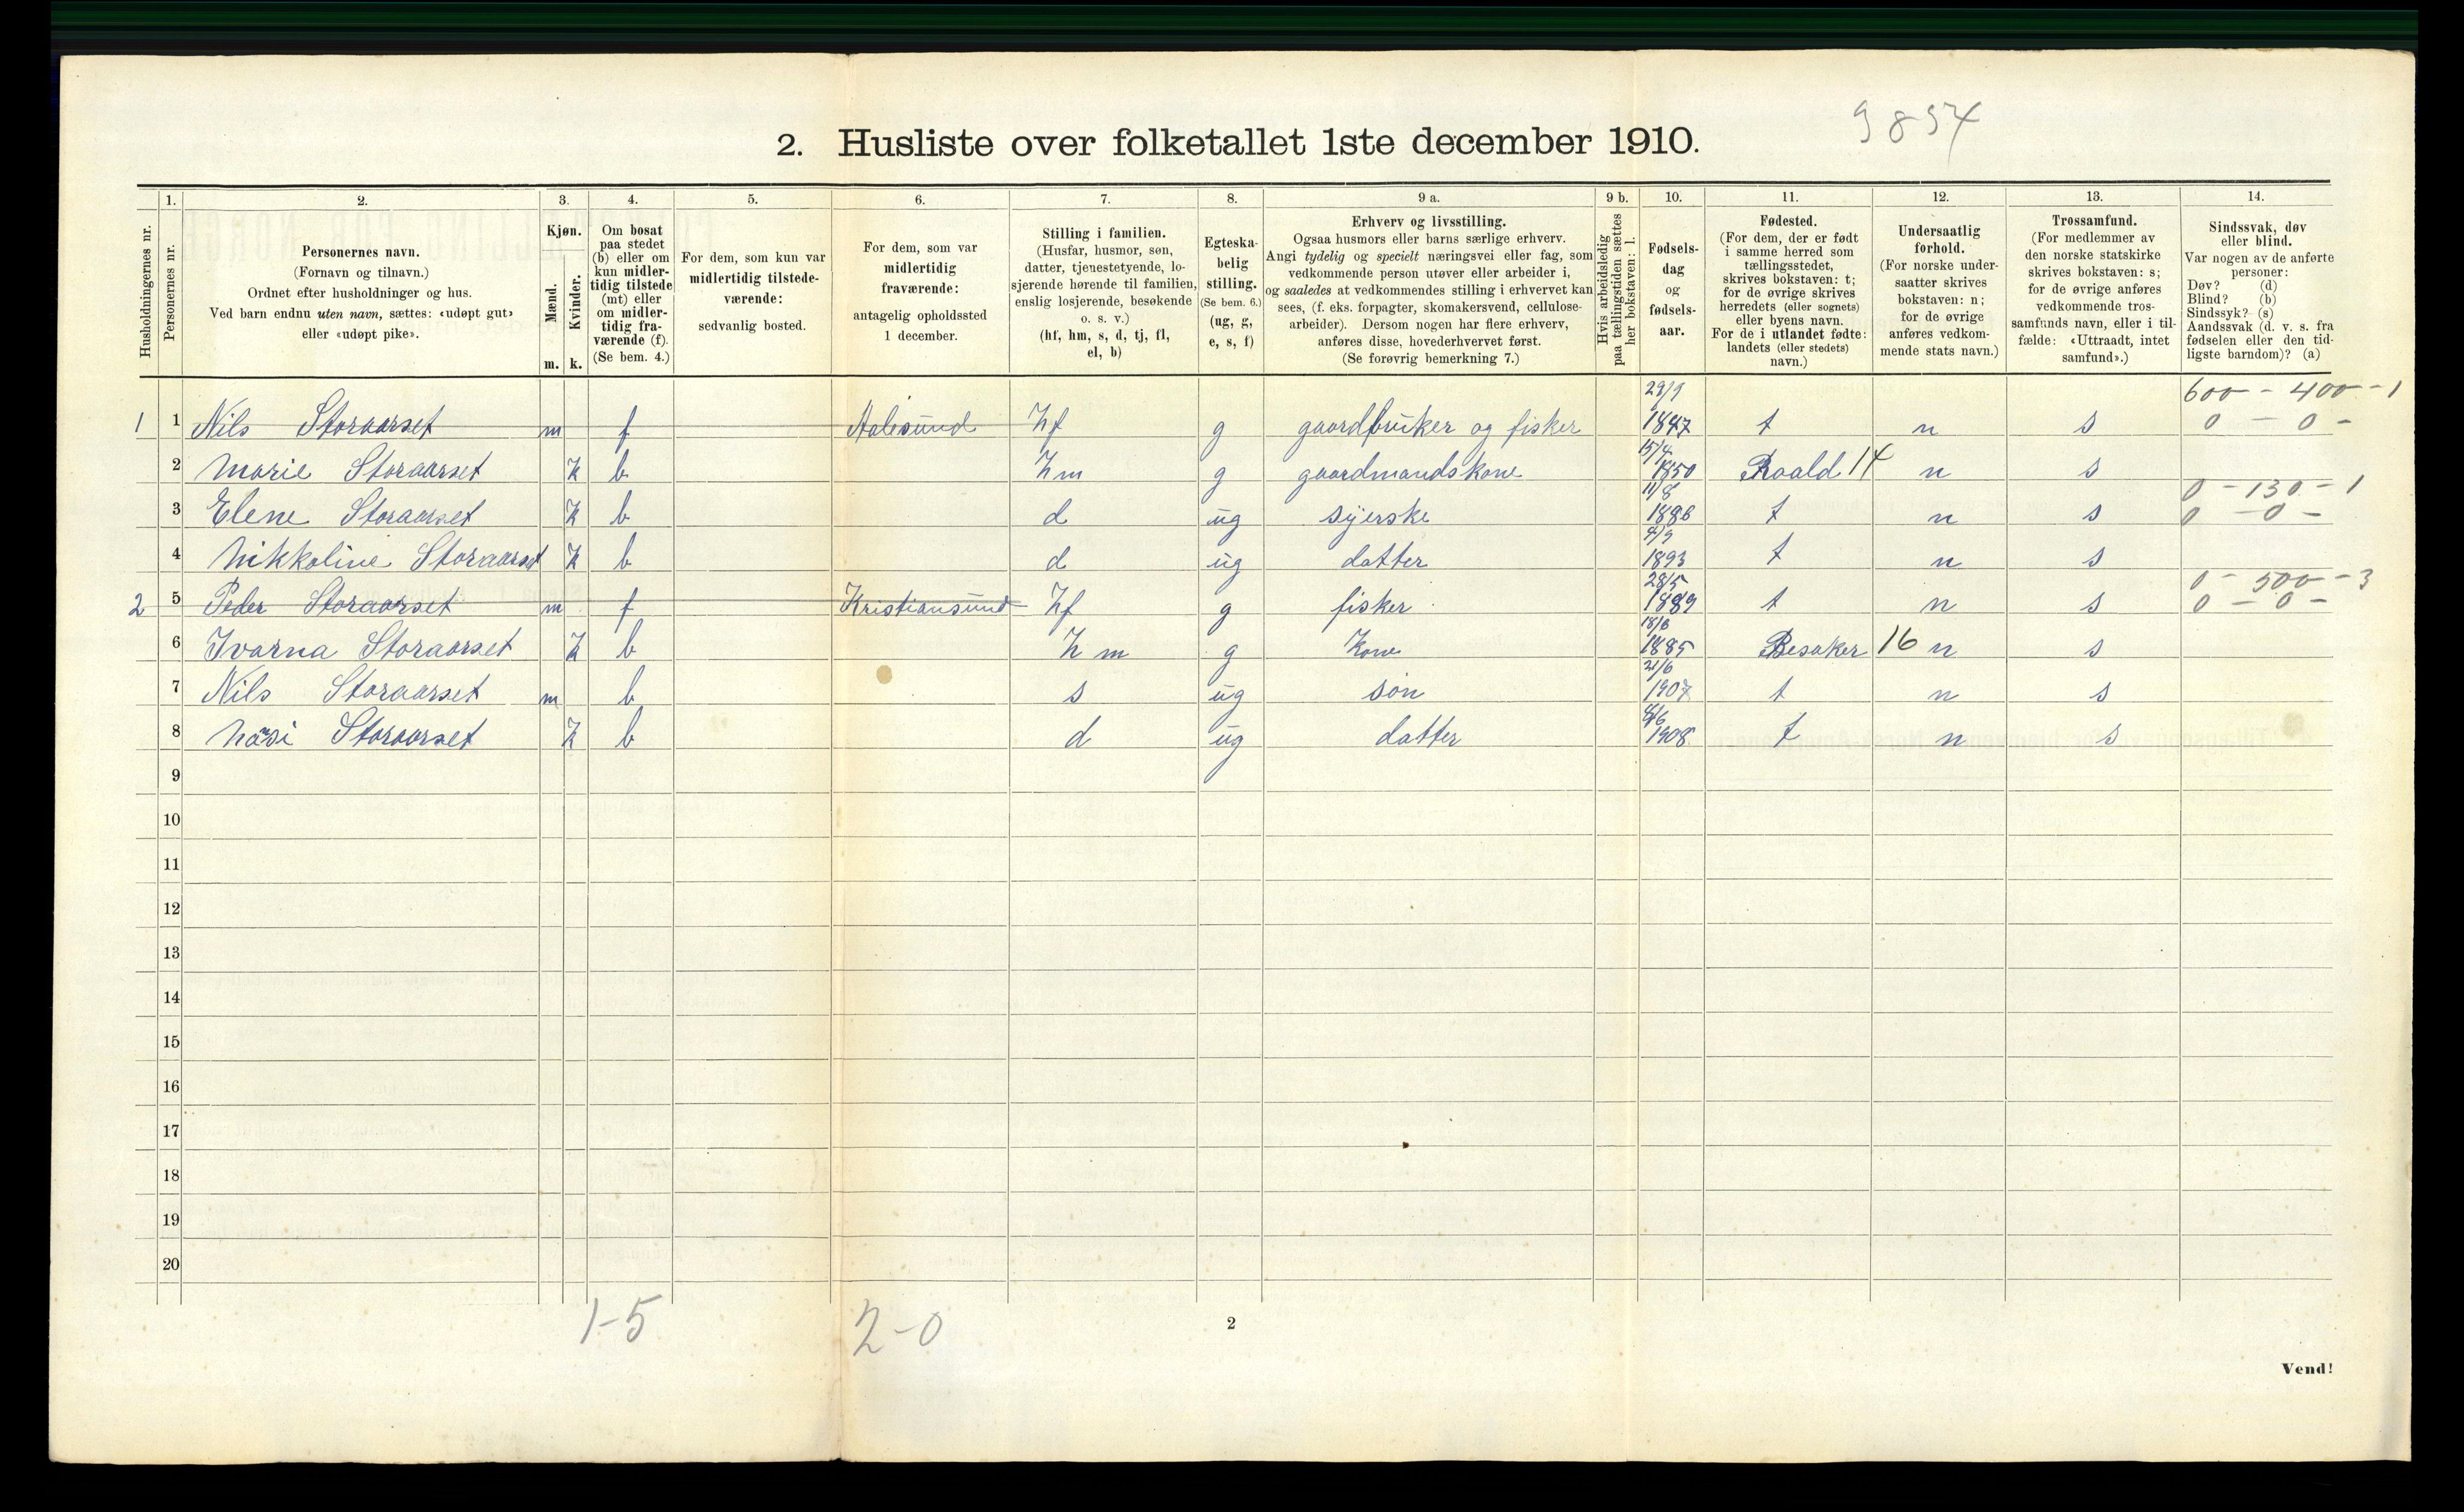 9854
2. Husliste over folketallet 1ste december 1910.
1. 2. 3. 4. 5. 6. 7. 8. 9 a. 9 b. 10. 11. 12. 13. 14.
Husholdningernes nr.
Personernes nr.
Personernes navn.
(Fornavn og tilnavn.)
Ordnet efter husholdninger og hus.
Ved barn endnu uten navn, sættes: «udøpt gut»
eller «udøpt pike».
Kjøn.
Mænd.
Kvinder.
m. k.
Om bosat
paa stedet
(b) eller om
kun midler-
tidig tilstede
(mt) eller
om midler-
tidig fra-
værende (f).
(Se bem. 4.)
For dem, som kun var
midlertidig tilstede-
værende:
sedvanlig bosted.
For dem, som var
midlertidig
fraværende:
antagelig opholdssted
1 december.
Stilling i familien.
(Husfar, husmor, søn,
datter, tjenestetyende, lo-
sjerende hørende til familien,
enslig losjerende, besøkende
o. s. v.)
(hf, hm, s, d, tj, fl,
el, b)
Egteska-
belig
stilling.
(Se bem. 6.)
(ug, g,
e, s, f)
Erhverv og livsstilling.
Ogsaa husmors eller barns særlige erhverv.
Angi tydelig og specielt næringsvei eller fag, som
vedkommende person utøver eller arbeider i,
og saaledes at vedkommendes stilling i erhvervet kan
sees, (f. eks. forpagter, skomakersvend, cellulose-
arbeider). Dersom nogen har flere erhverv,
anføres disse, hovederhvervet først.
(Se forøvrig bemerkning 7.)
Hvis arbeidsledig
paa tællingstiden sættes
her bokstaven: l.
Fødsels-
dag
og
fødsels-
aar.
Fødested.
(For dem, der er født
i samme herred som
tællingsstedet,
skrives bokstaven: t;
for de øvrige skrives
herredets (eller sognets)
eller byens navn.
For de i utlandet fødte:
landets (eller stedets)
navn.)
Undersaatlig
forhold.
(For norske under-
saatter skrives
bokstaven: n;
for de øvrige
anføres vedkom-
mende stats navn.)
Trossamfund.
(For medlemmer av
den norske statskirke
skrives bokstaven: s;
for de øvrige anføres
vedkommende tros-
samfunds navn, eller i til-
fælde: «Uttraadt, intet
samfund».)
Sindssvak, døv
eller blind.
Var nogen av de anførte
personer:
Døv? (d)
Blind? (b)
Sindssyk? (s)
Aandssvak (d. v. s. fra
fødselen eller den tid-
ligste barndom)? (a)
600 - 400 - 1
1 1 Nils Storaarset m f Aalesund hf g gaardbruker og fisker 29/9 1847 t n s 0 - 0 -
2 Marie Storaarset k b hm g gaardmandskone 15/4 1850 Roald 14 n s
0 - 130 - 1
3 Elene Storaarset k b d ug syerske 11/8 1886 t n s 0 - 0 -
4 Nikkoline Storaarset k b d ug datter 4/9 1893 t n s
0 - 500 - 3
2 5 Peder Storaarset m f Kristiansund hf g fisker 28/5 1889 t n s 0 - 0 -
6 Ivarna Storaarset k b hm g Kone 18/6 1885 Besaker 16 n s
7 Nils Storaarset m b s ug søn 21/6 1907 t n s
8 Storaarset k b d ug datter 1908 t n s
9
10
11
12
13
14
15
16
17
18
19
20
1-5 2-0
2
Vend!